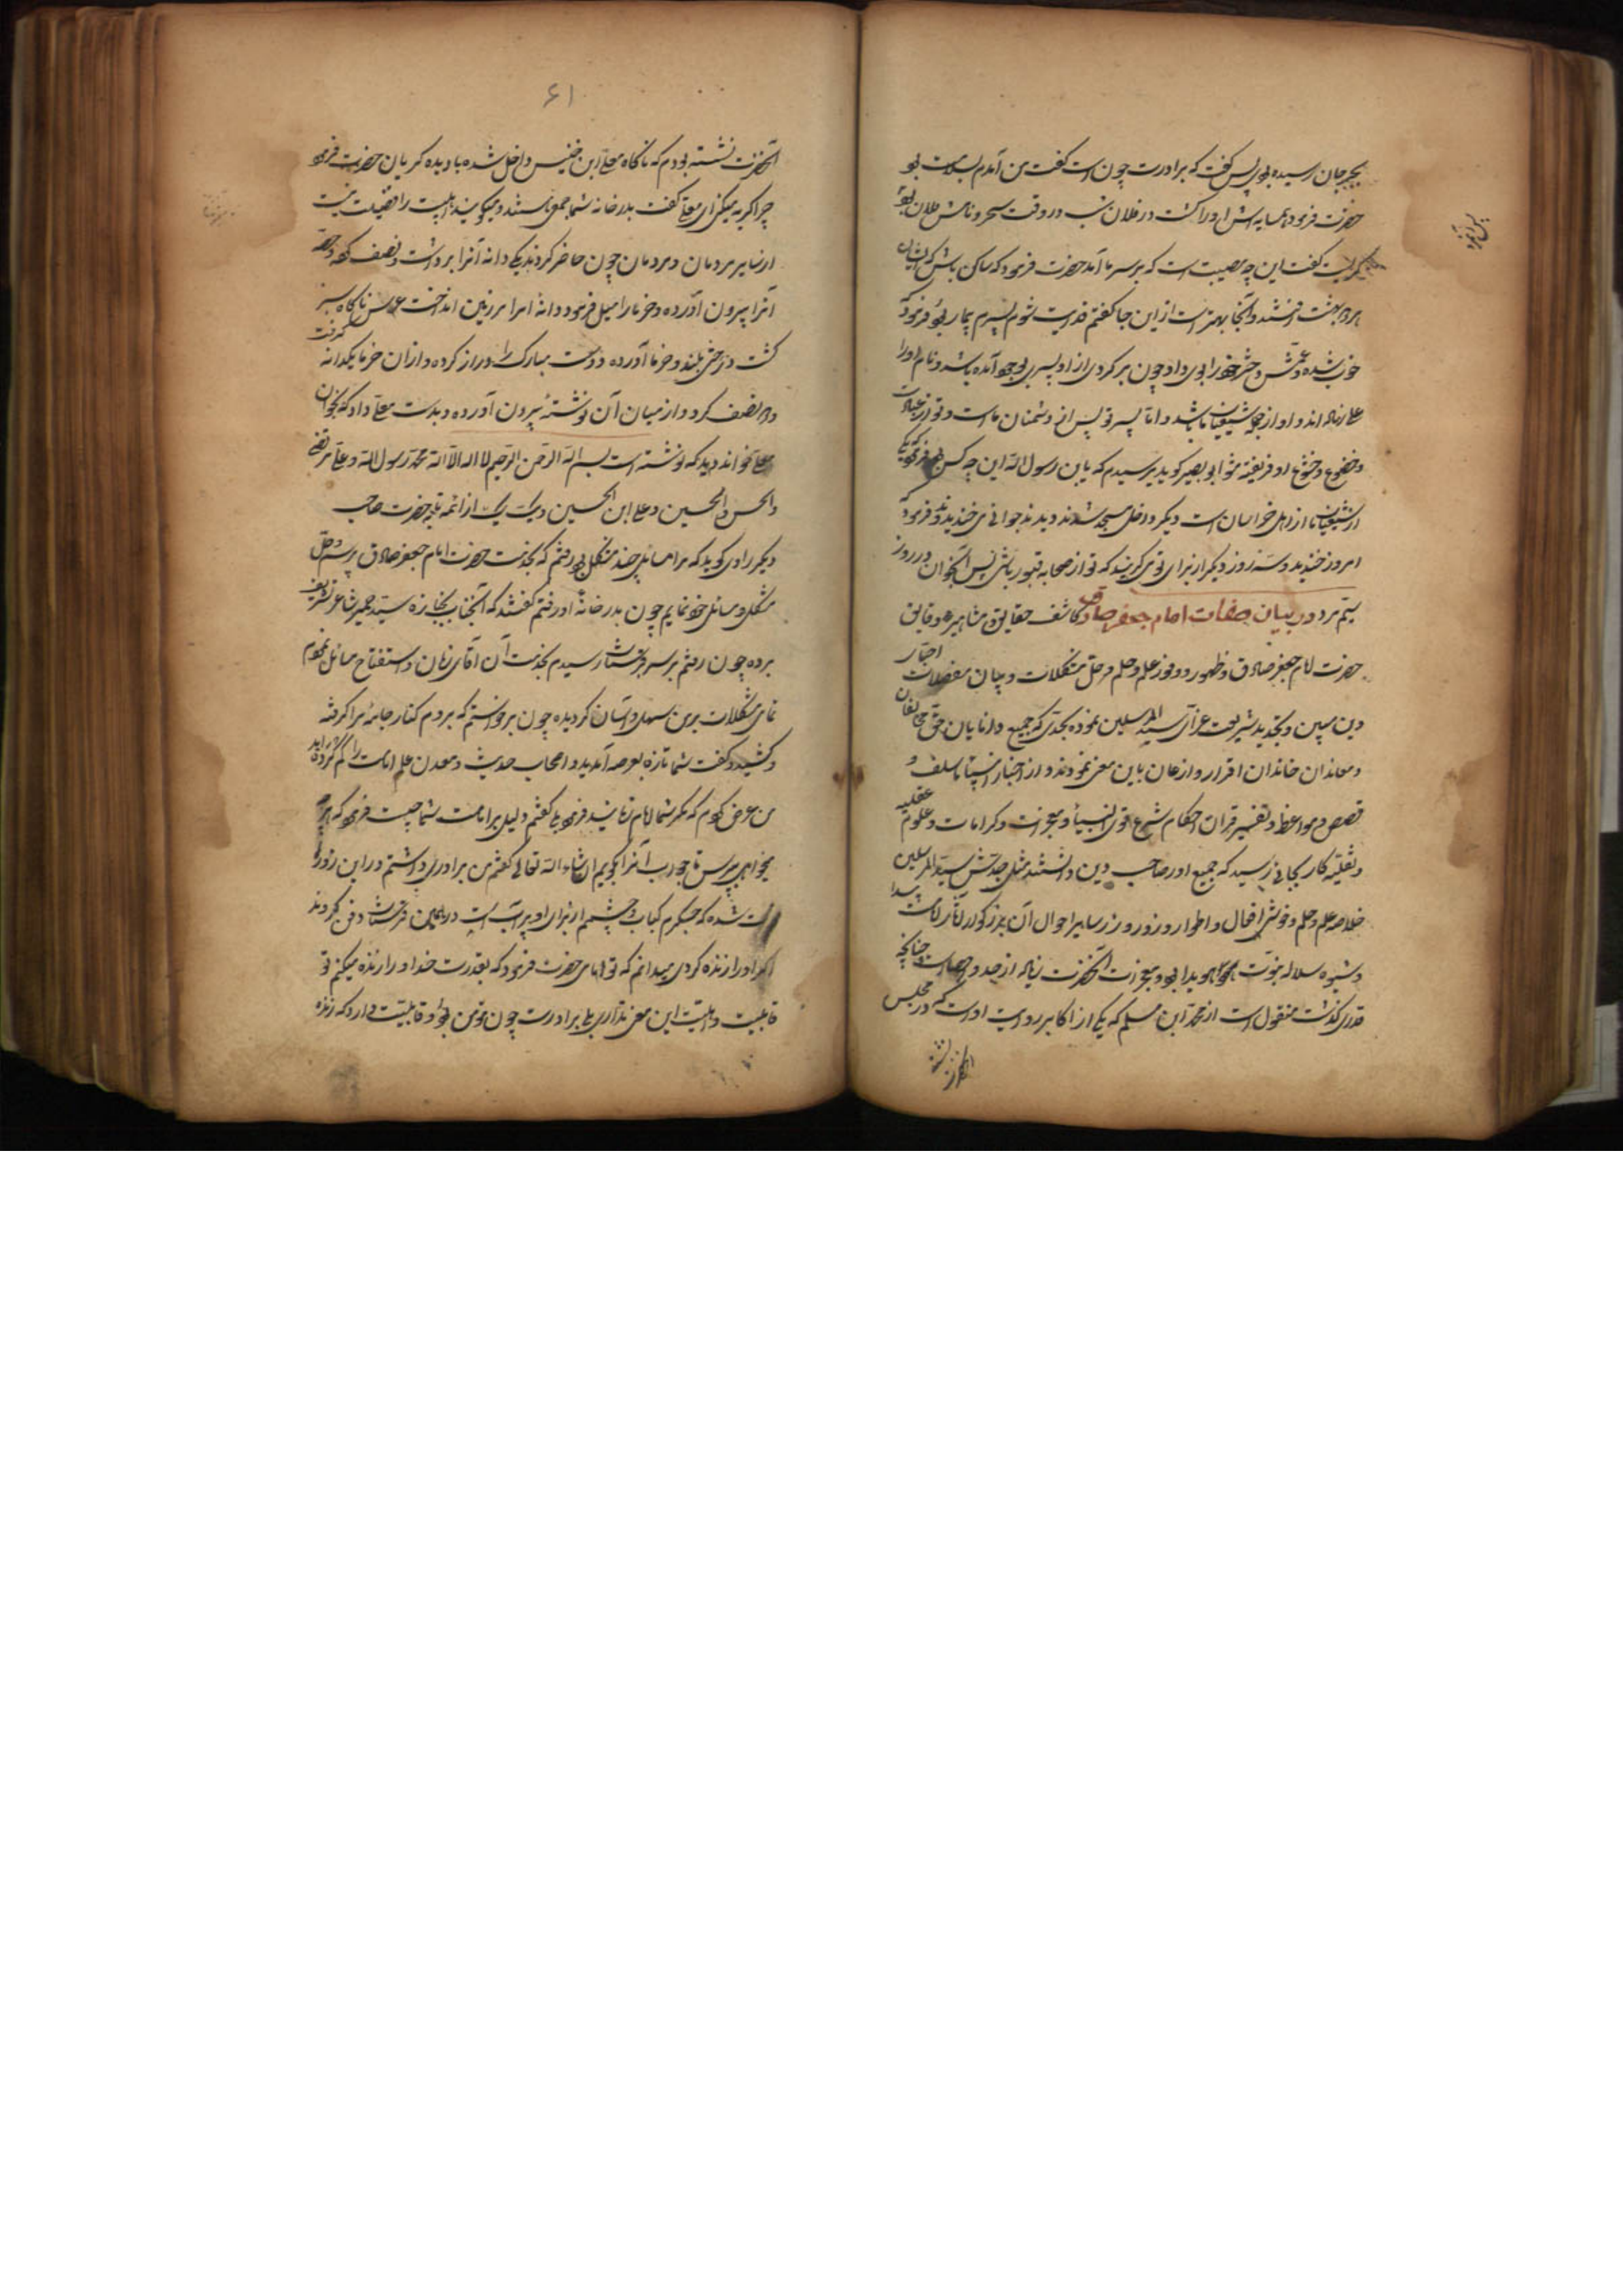 بجرجان رسیده بودی پس گفت که برادرت چون است گفت من آمدم بسلامت بود
حضرت فرمود همسایه اش او را کشت در فلان شب در وقت سحر و نامش فلان بود
گریست گفت این چه مصیبت است که بر سر ما آمد حضرت فرمود که ساکن باش که ایشان
بهشت رفتند و آنجا بهتر است از این جا گفتم فدایت شوم پسرم بیمار بود فرمود که
خوب شده و عمش دختر خود را بوی داد چون برگردی از او پسری بوجود آمده باشد و نام او را
علی نهاده اند و او از شیعیان ما باشد و اما پسر تو پس از دشمنان ماست و تو از عبادت
و خضوع و خشوع او فریفته مشو ابو بصیر گوید پرسیدم که یا بن رسول الله این چه کس بود فرمود یکی
از شیعیان ما از اهل خراسان است دیگر داخل مسجد شدند دیدند جوانی می خندید فرمود که
امروز خندید و سه روز دیگر از برای تو می گریند که تو از صحابه قبور باشی پس آن جوان در روز
سیم مرد در بیان صفات امام جعفر صادق کاشف حقایق مشاهیر و دقایق
اخبار
حضرت امام جعفر صادق و ظهور و وفور علم و حلم و حل مشکلات و بیان معضلات
دین مبین و تجدید شریعت غرای سید المرسلین نموده بحدی که جمیع دانایان حتی مخالفان
و معاندان خاندان اقرار و اذعان باین معنی نمودند و از اخبار انبیا ما سلف و
قصص و مواعظ و تفسیر قران احکام شرع اقوی انبیا و معجزات و کرامات و علوم عقلیه
و نقلیه کار بجائی رسید که جمیع او را صاحب دین دانستند مثل جدش سید المرسلین
خلاصه علم و حلم و خوش افعال و اطوار و روز و روز سایر احوال آن بزرگوار آثار امامت پیدا
و شیوه سلاله نبوت هویدا بود و معجزات آنحضرت زیاده از حد و حصر است چنانچه
قدری گذشت منقول است از محمد ابن مسلم که یکی از اکابر روات اوست که در مجلس
۶۱
آنحضرت نشسته بودم که ناگاه معلی ابن خنیس داخل شده با دیده گریان حضرت فرمود
چرا گریه میکنی ای معلی گفت بدر خانه شما جمعی هستند و میگویند اهلبیت را فضیلت نیست
از سایر مردمان و مردمان چون حاضر کردند یکی دانه آنرا برداشت و نصف کرد
آنرا بیرون آورده و خرما را میل فرمود و دانه امرا بر زمین انداخت ناگاه سبز
گشت درختی بلند و خرما آورده و دست مبارک را دراز کرده و از آن خرما یکدانه گرفت
و نصف کرد و از میان آن نوشتهٔ بیرون آورده و بدست معلی داد که بخوان
معلی خواند دید که نوشته است بسم الله الرحمن الرحیم لا اله الا الله محمد رسول الله و علی مرتضی
والحسن والحسین و علی ابن الحسین و یک یک از ائمه تا حضرت صاحب
دیگر راوی گوید که مرا مسائل چند مشکل بود رفتم که بخدمت حضرت امام جعفر صادق برسم و حل
مشکل و مسائل خود نمایم چون بدر خانه او رفتم گفتند که آنجناب بجنازه سید حمیر شاعر تشریف
برده چون رفتم بر سر قبرستان رسیدم بخدمت آن آقای زمان و استفتاح مسائل نمودم
تمامی مشکلات بر من سهل و آسان گردیده چون برخواستم که بروم کنار جامه مرا گرفته
و کشید و گفت شما تازه بعرصه آمدید و اصحاب حدیث و معدن علم امامت را گم کرده اید
من عرض کردم که مگر شما امام زمانید فرمود بلی گفتم دلیل بر امامت شما چیست فرمود که هر چه
میخواهی بپرس تا جواب آنرا بگویم ان شاء الله تعالی گفتم من برادری داشتم در این روزها
فوت شده که جگرم کباب و چشمم از برای او پر آب است در همین قبرستان دفن کردند
اگر او را زنده کردی میدانم که تو امامی حضرت فرمود که بقدرت خدا او را زنده میکنم تو
قابلیت و اهلیت این معنی نداری بلی برادرت چون مؤمن بود و قابلیت دارد که زنده